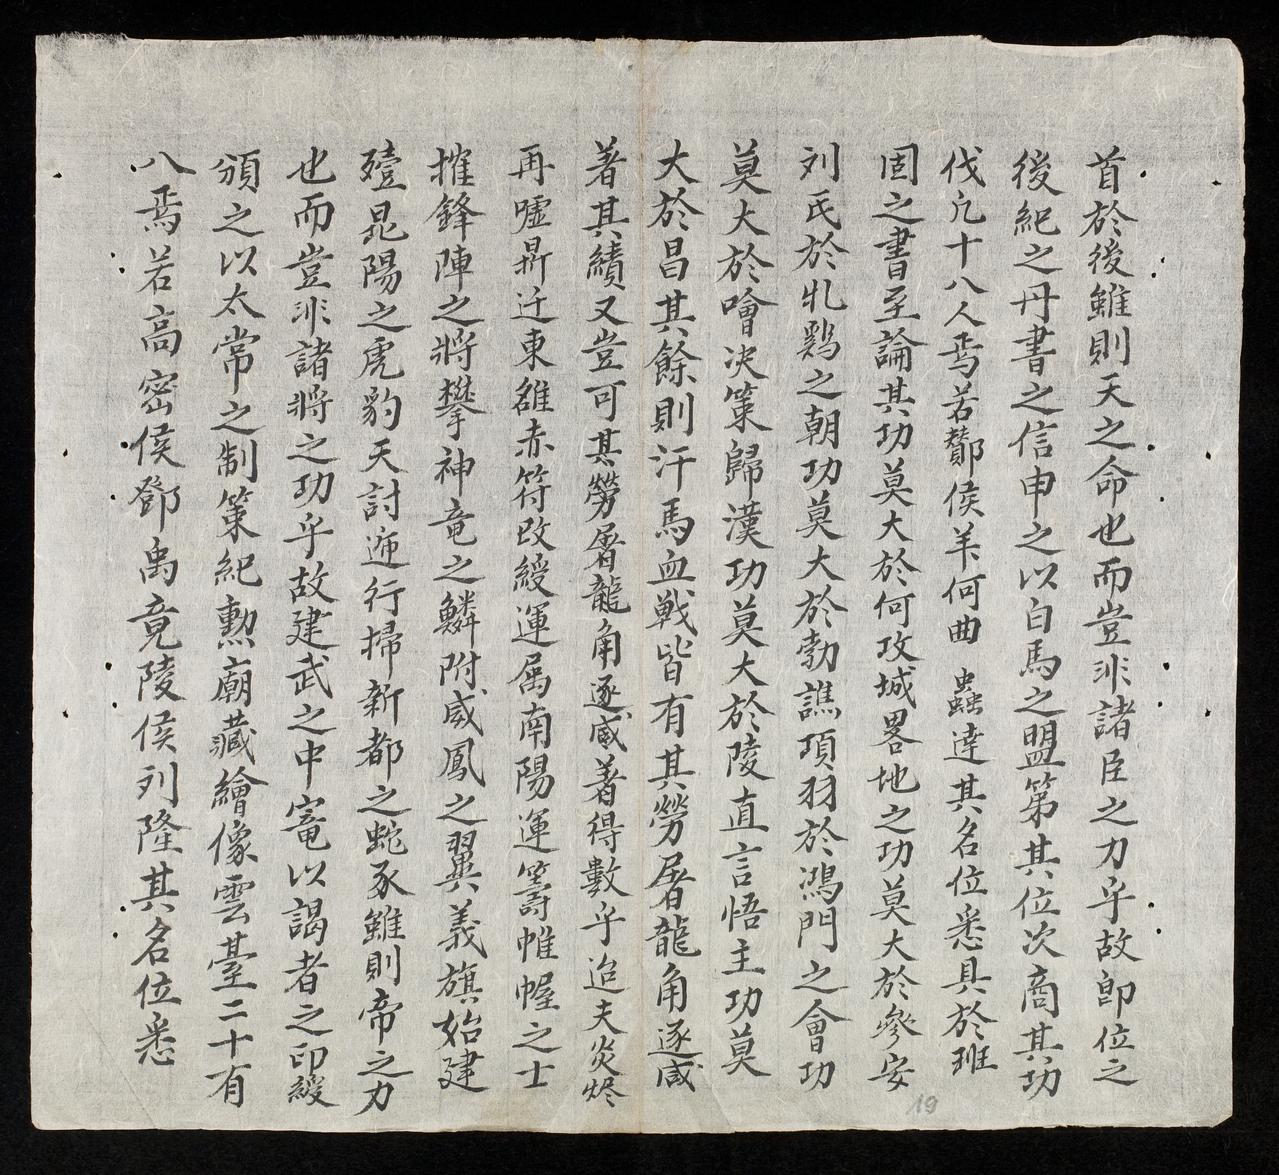 首於後雖則天之命也而豈非諸臣之力乎故即位之
後紀之丹書之信申之以白馬之盟第其位次商其功
伐凡十八人焉若酇侯羊何曲 蟲達其名位悉具於班
固之書至論其功莫大於何攻城畧地之功莫大於參安
刘氏於牝鷄之朝功莫大於勃譙項羽於鴻門之會功
莫大於噲決策歸漢功莫大於陵直言悟主功莫
大於昌其餘則汗馬血戦皆有其勞屠龍角逐咸
著其績又豈可其勞屠龍角逐咸著得數乎迨夫炎烬
再嘘鼎迁東雒赤符改綬運属南陽運籌帷幄之士
摧鋒陣之將攀神竜之鱗附威鳳之翼義旗始建
殪昆陽之虎豹天討迊行掃新都之蛇豕雖則帝之力
也而豈非諸將之功乎故建武之中寵以謁者之印綬
頒之以太常之制策紀勲廟藏繪像雲臺二十有
八焉若高密侯鄧禹竟陵侯列隆其名位悉
19